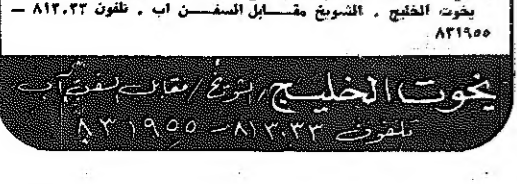 يخوت الخليج . الشويخ مقــابل السفــن اب . تلفون ٨١٣٠٣٣ –
٨٣١٩٥٥
يخوت الخليج / الشويخ / مقابل السفن آب
تلفون ٨١٣٠٣٣ – ٨٣١٩٥٥